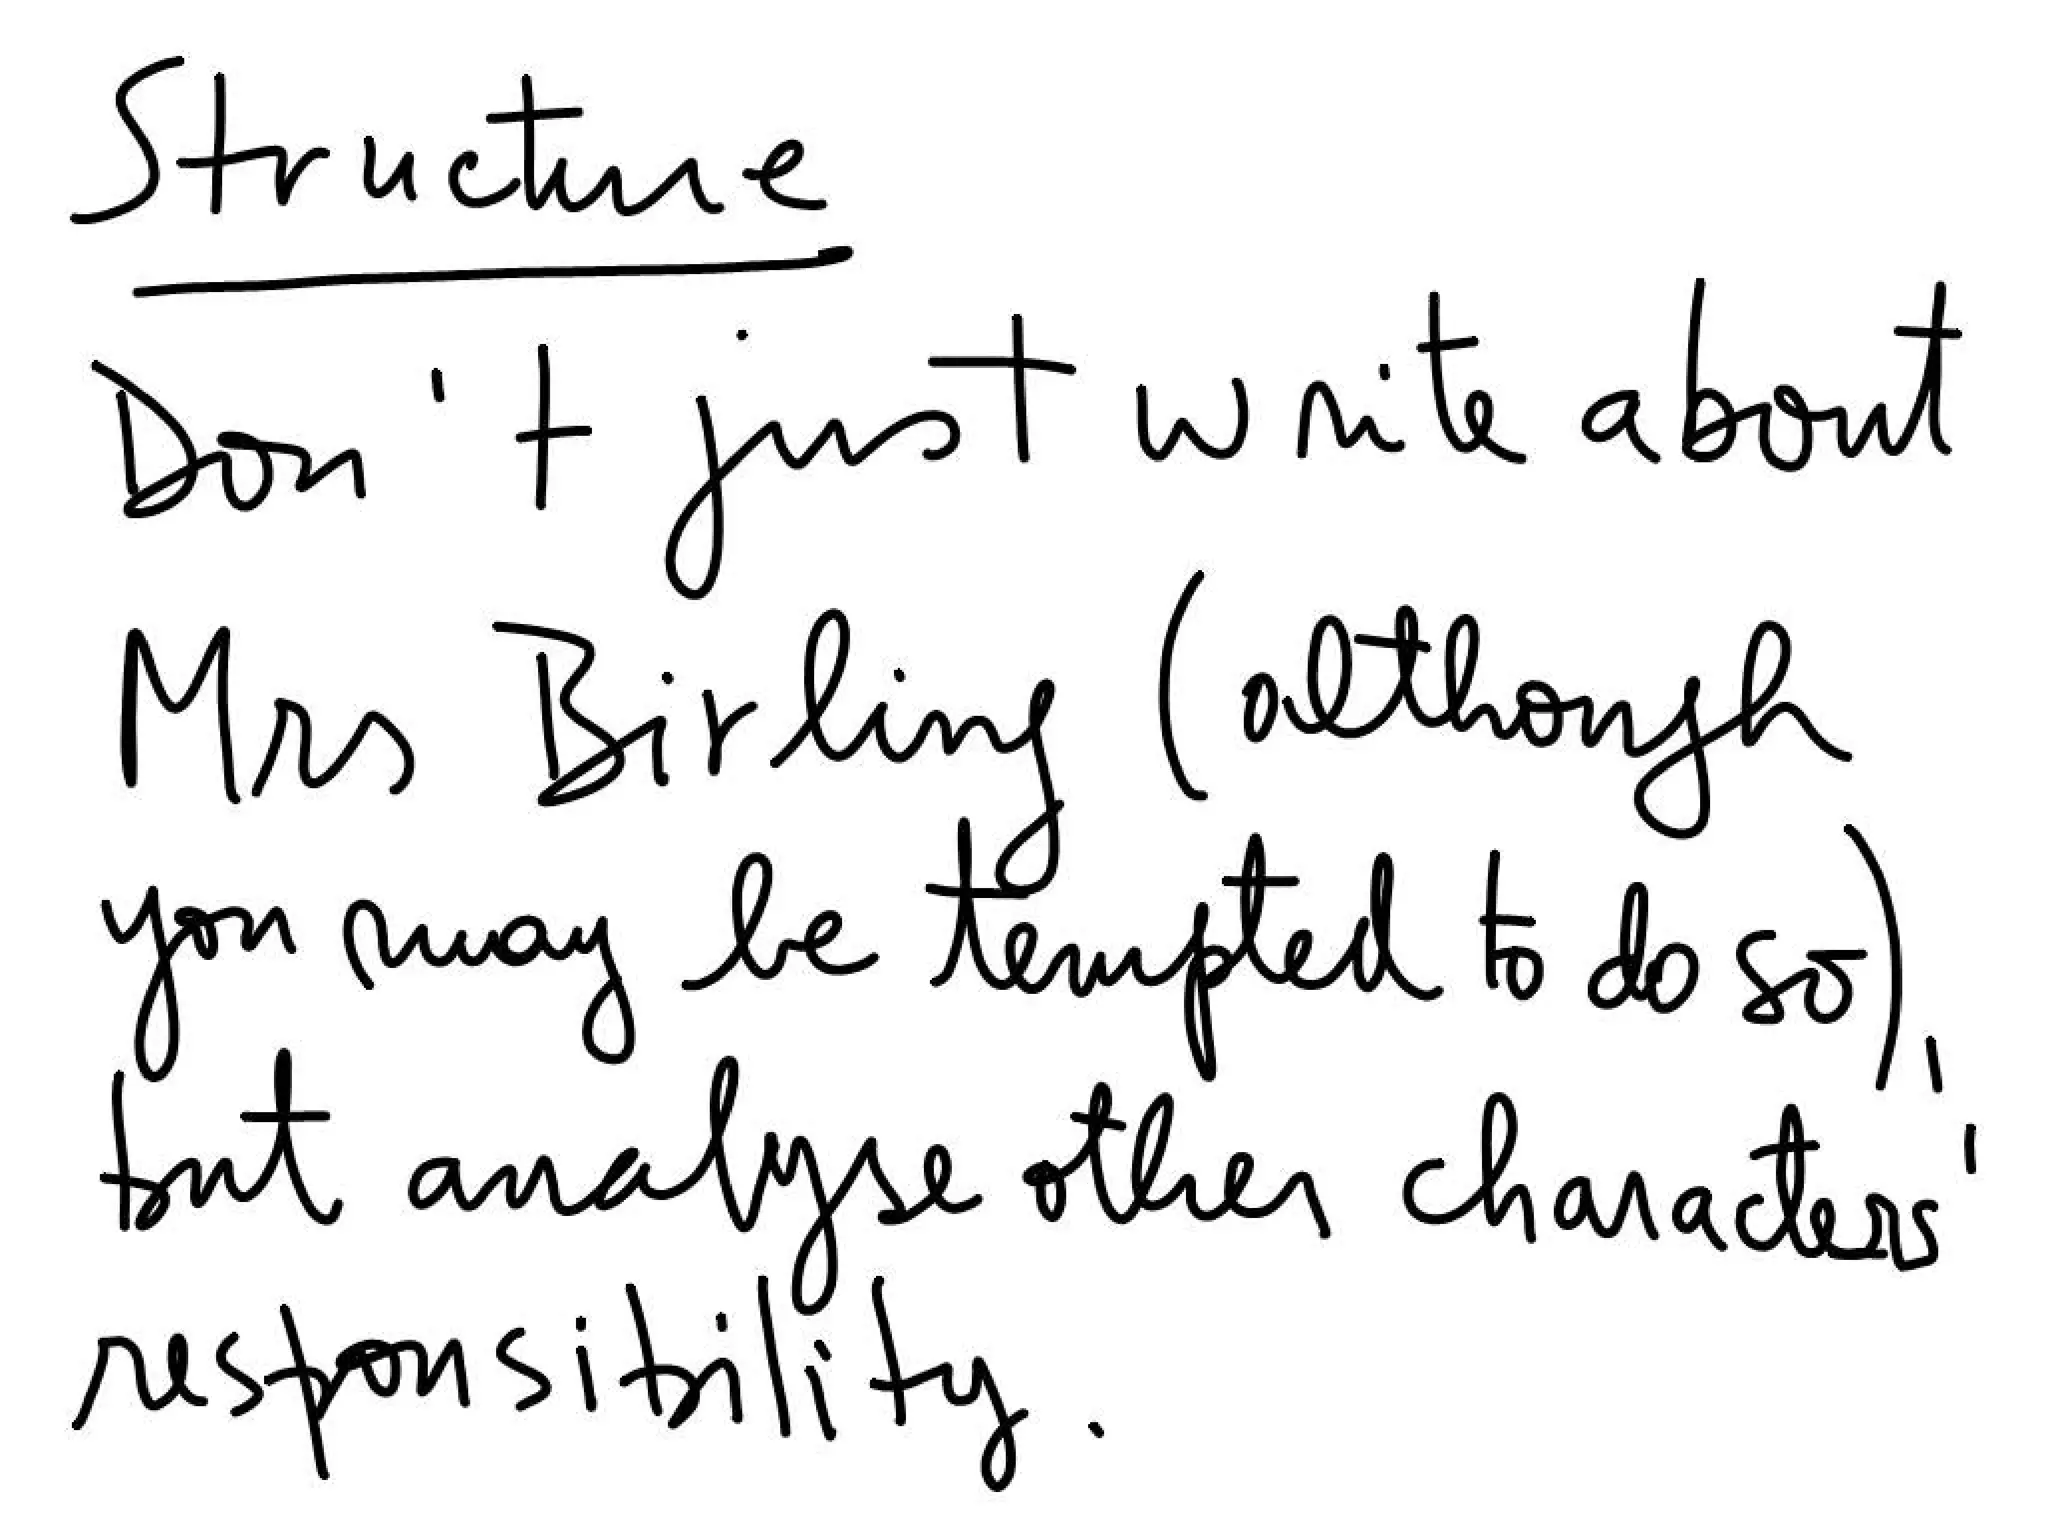 Structure
Don't just write about
Mrs Birling (although
you may be tempted to do so),
but analyse other characters'
responsibility.